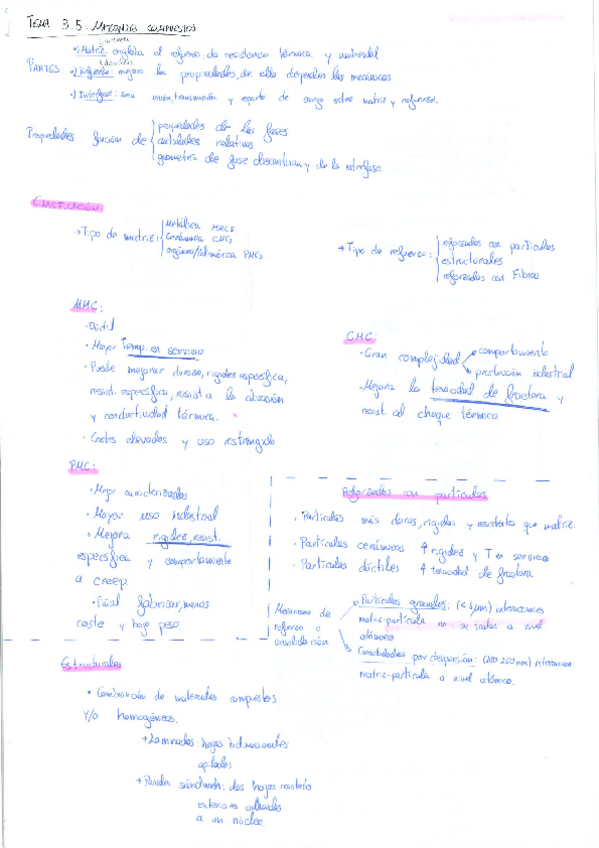 TEMA 3.5: MATERIALES COMPUESTOS
PARTES:
·) Matriz: engloba al refuerzo, da resistencia térmica y ambiental
·) Refuerzo: mejora las propiedades, de ello dependen las mecánicas
·) Interfase: zona unión, transmisión y reparto de carga entre matriz y refuerzo.
Propiedades función de
propiedades de las fases
cantidades relativas
geometría de fase discontinua y de la interfase
CLASIFICACIÓN:
→ Tipo de matriz:
Metálica MMCs
Cerámica CMCs
orgánica/Polimérica PMCs
→ Tipo de refuerzo:
reforzados con partículas
estructurales
reforzados con Fibras
MMC:
· Dúctil
· Mayor Temp. en servicio
· Puede mejorar dureza, rigidez específica,
resist. específica, resist a la abrasión
y conductividad térmica.
· Costes elevados y uso restringido
CMC:
· Gran complejidad
comportamiento
producción industrial
· Mejora la tenacidad de fractura y
resist. al choque térmico
PMC:
· Mejor caracterizados
· Mayor uso industrial
· Mejora rigidez, resist.
específica y comportamiento
a creep.
· Fácil fabricar, menos
coste y bajo peso
Reforzados con partículas
· Partículas más duras, rígidas y resistentes que matriz.
· Partículas cerámicas ↑ rigidez y T en servicio
· Partículas dúctiles ↑ tenacidad de fractura.
Mecanismo de
refuerzo o
consolidación
Partículas grandes: interacciones
matriz-partícula no se tratan a nivel
atómico
Consolidadas por dispersión:
matriz-partícula a nivel atómico.
Estructurales
· Combinación de materiales compuestos
y/o homogéneos.
→ Laminados: hojas bidireccionales
apiladas
→ Paneles sándwich: dos hojas
exteriores
a un núcleo.